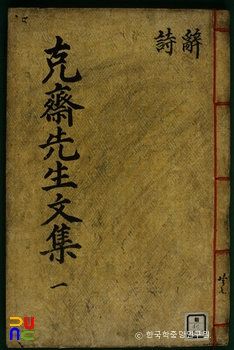 辭
詩
克齋先生文集 一
共七
© 한국학중앙연구원